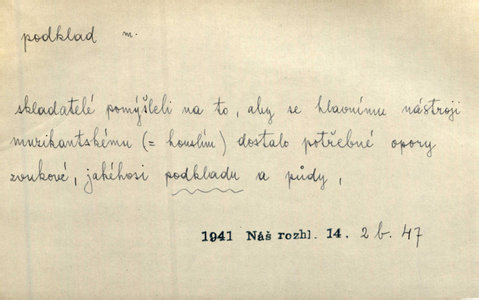 podklad m.
skladatelé pomýšleli na to, aby se hlavnímu nástroji
muzikantskému (= houslím) dostalo potřebné opory
zvukové, jakéhosi podkladu a půdy,
1941 Náš rozhl. 14. 2 b. 47